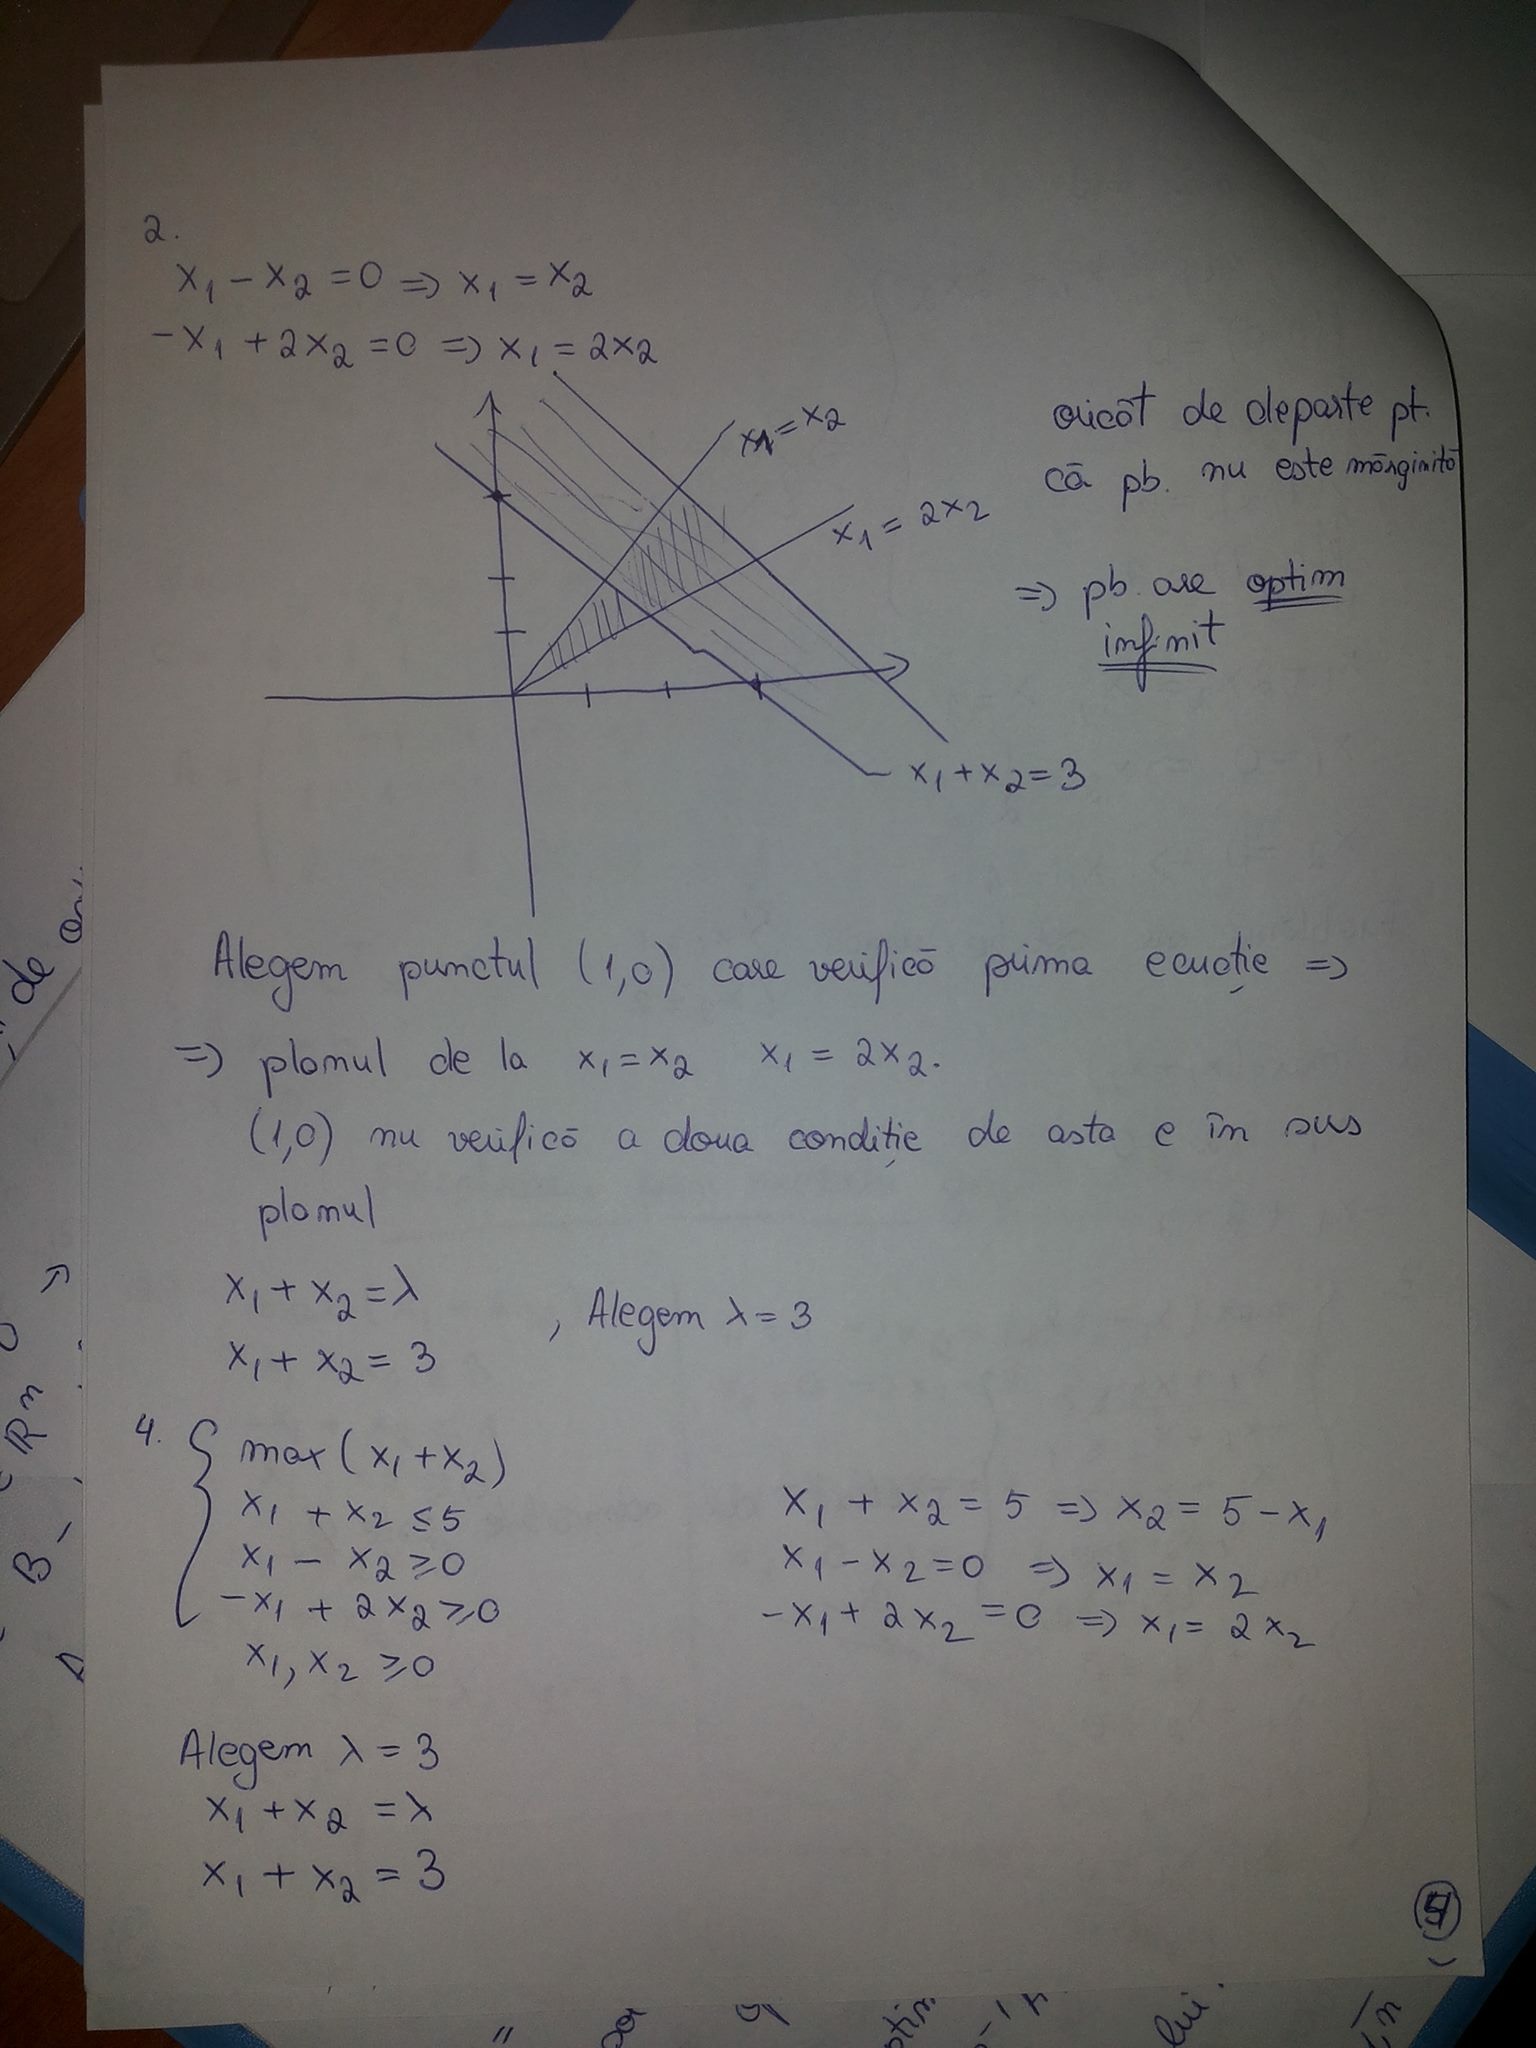 2.
x₁ - x₂ = 0 => x₁ = x₂
-x₁ + 2x₂ = 0 => x₁ = 2x₂
x₁ = x₂
x₁ = 2x₂
oricât de departe pt.
că pb. nu este mărginită
=> pb. are optim
infinit
x₁ + x₂ = 3
Alegem punctul (1,0) care verifică prima ecuație =>
=> planul de la x₁ = x₂ x₁ = 2x₂.
(1,0) nu verifică a doua condiție de asta e în sus
planul
x₁ + x₂ = λ
, Alegem λ = 3
x₁ + x₂ = 3
4. { max (x₁ + x₂)
x₁ + x₂ ≤ 5
x₁ - x₂ ≥ 0
-x₁ + 2x₂ ≥ 0
x₁, x₂ ≥ 0
x₁ + x₂ = 5 => x₂ = 5 - x₁
x₁ - x₂ = 0 => x₁ = x₂
-x₁ + 2x₂ = 0 => x₁ = 2x₂
Alegem λ = 3
x₁ + x₂ = λ
x₁ + x₂ = 3
de